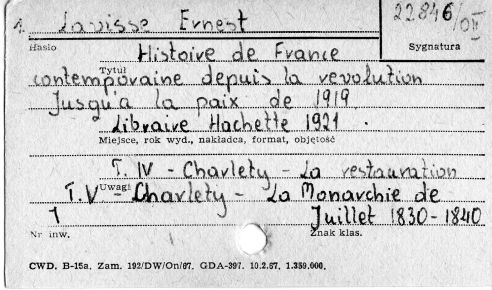 1. Lavisse Ernest
22846/OII
Hasło
Sygnatura
Histoire de France
Tytuł
contemporaine depuis la revolution
Jusqu'a la paix de 1919
Libraire Hachette 1921.
Miejsce, rok wyd., nakładca, format, objętość
T. IV - Charlety - La restauration
Uwagi
T. V - Charlety - La Monarchie de
1 Juillet 1830-1840
Nr inw.
Znak klas.
CWD. B-15a. Zam. 192/DW/On/67. GDA-397. 10.2.67. 1.359.000.